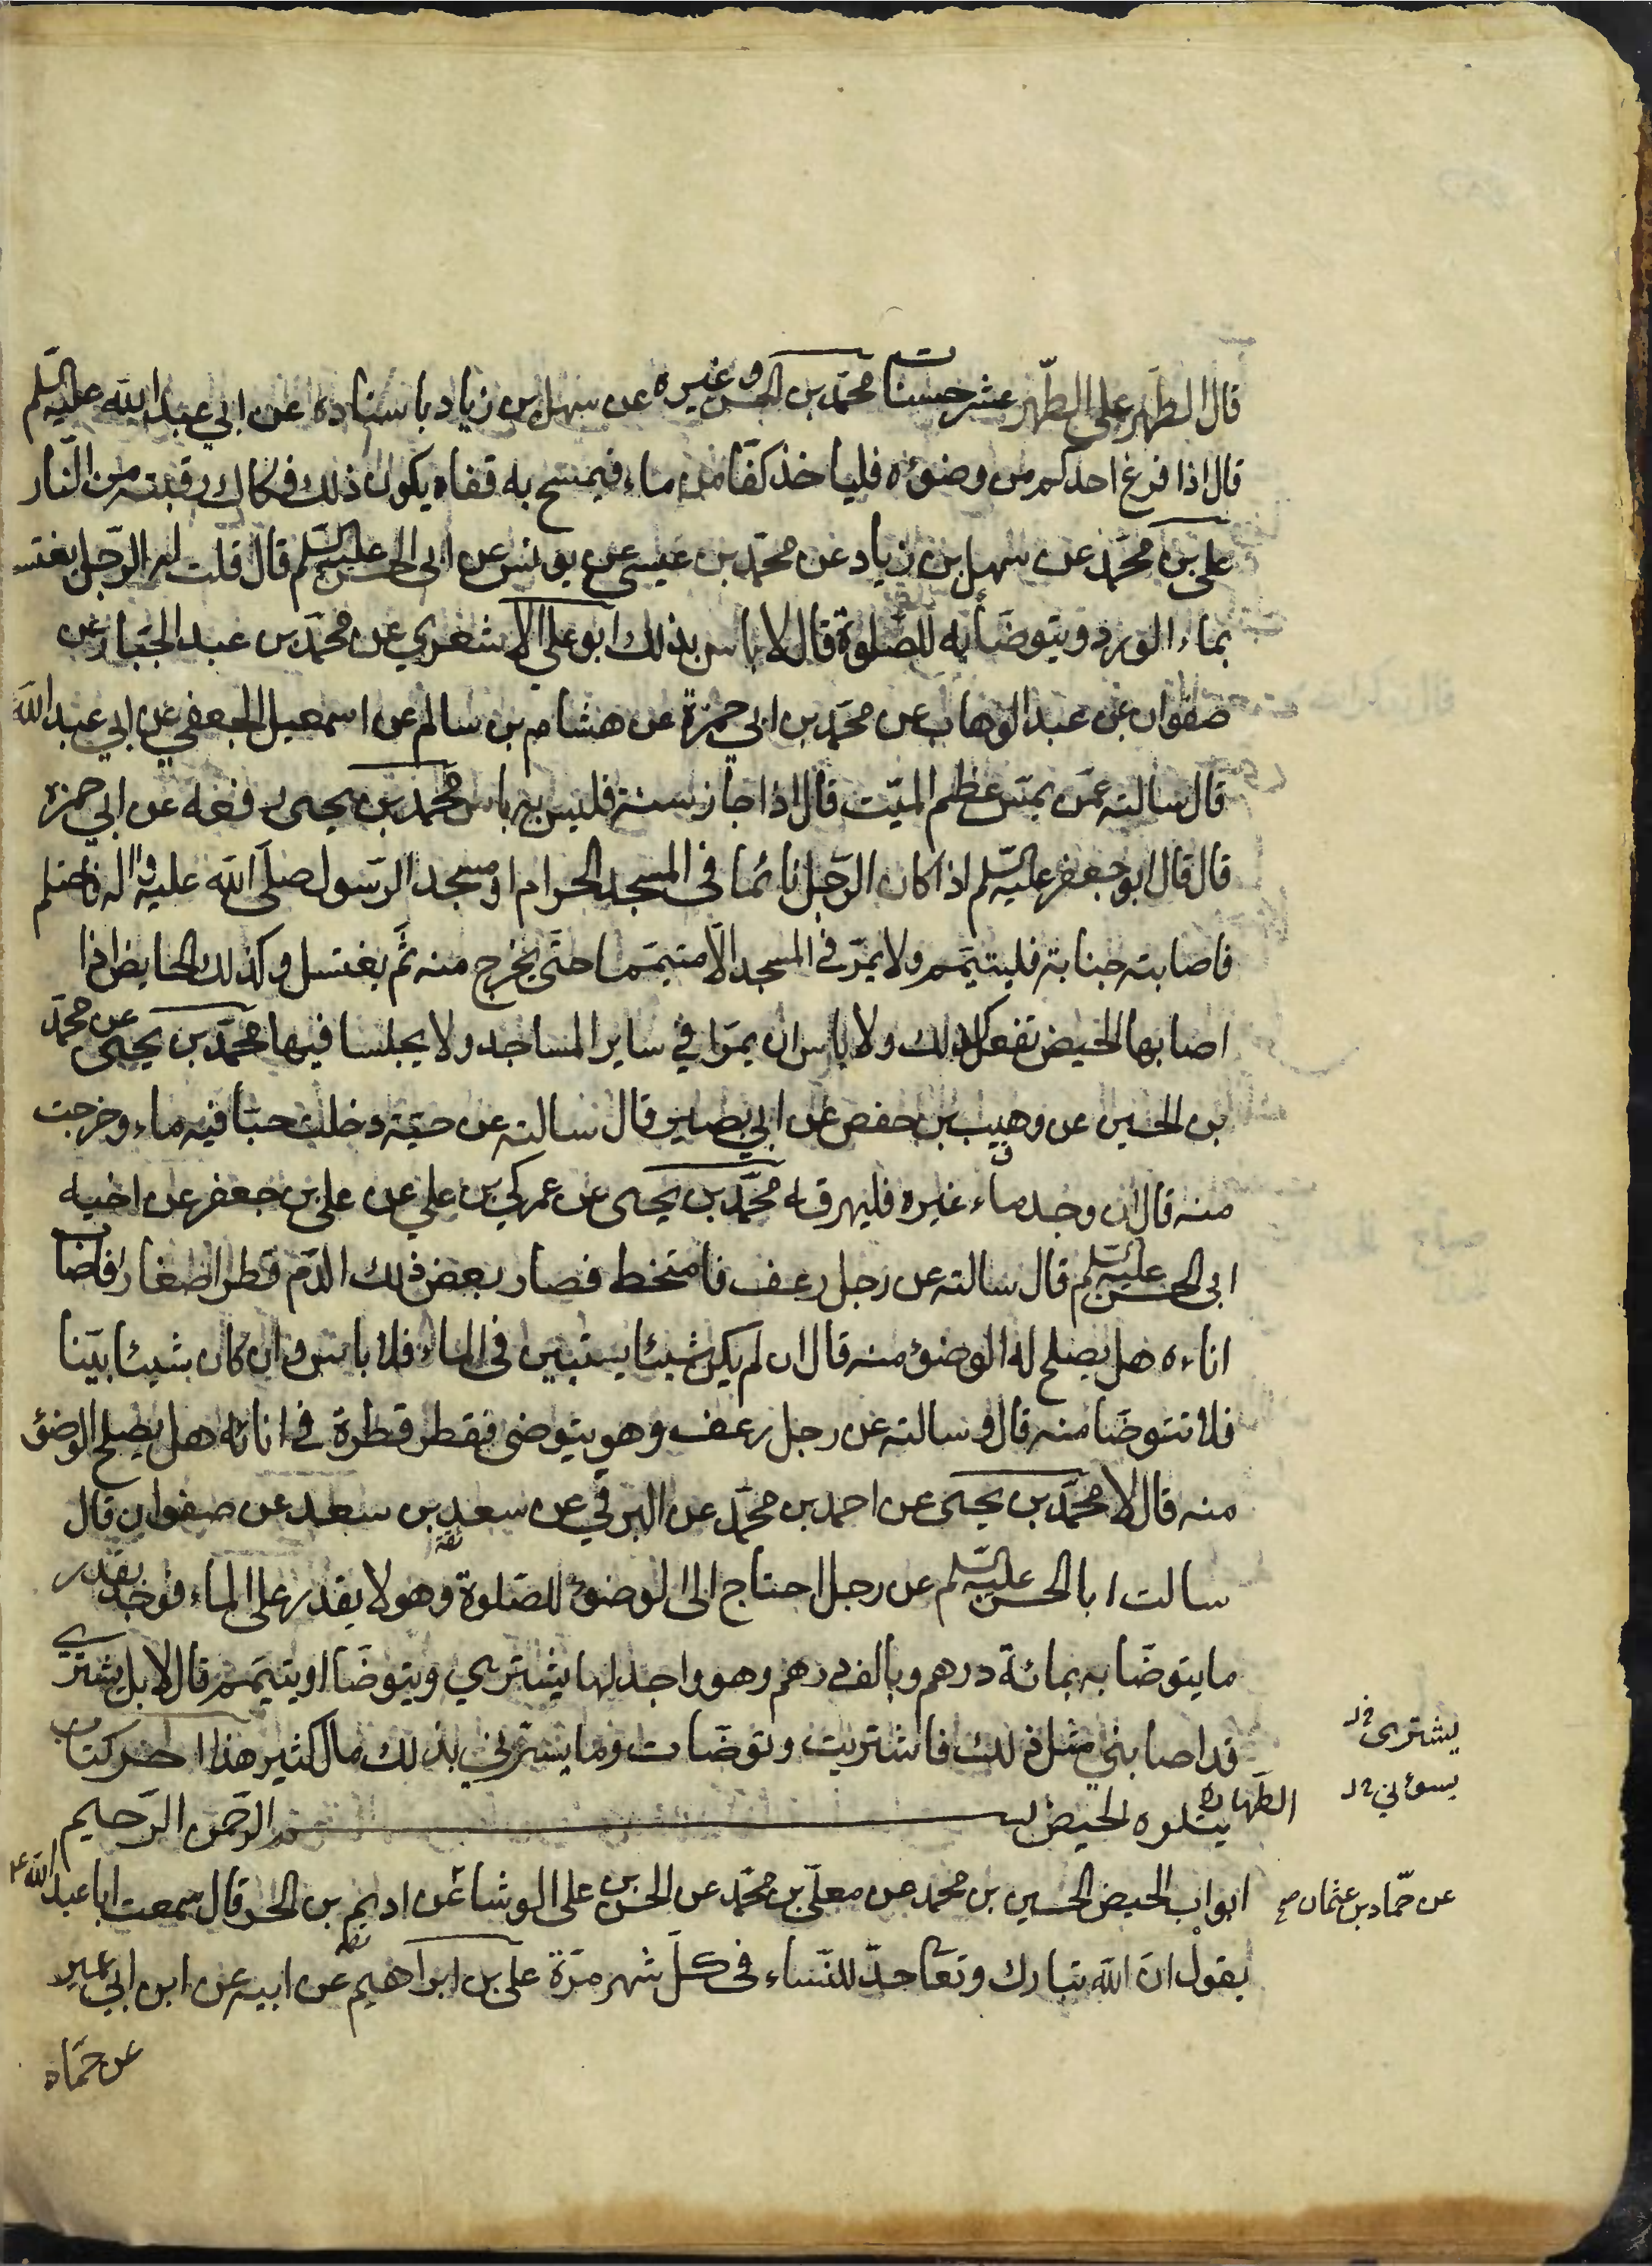 قال الطهر على الطهر عشر حسنات محمد بن الحسن وغيره عن سهل بن زياد باسناده عن ابي عبد الله عليه السلم
قال اذا فرغ احدكم من وضوئه فلياخذ كفّا من ماء فيمسح به قفاه يكون ذلك فكاك رقبته من النّار
على بن محمّد عن سهل بن زياد عن محمّد بن عيسى عن يونس عن ابى الحسن عليه السّلم قال قلت له الرّجل يغتسل
بماء الورد ويتوضّأ به للصّلوة قال لا باس بذلك ابو على الاشعري عن محمّد بن عبد الجبّار عن
صفوان عن عبد الوهاب عن محمّد بن ابي حمزة عن هشام بن سالم عن اسمعيل الجعفي عن ابي عبد الله
قال سالته عمّن يمسّ عظم الميّت قال اذا جاز سنة فليس به باس محمّد بن يحيى رفعه عن ابي حمزه
قال قال ابو جعفر عليه السّلم اذا كان الرّجل نائما في المسجد الحرام او مسجد الرّسول صلّى الله عليه واله فاحتلم
فاصابته جنابة فليتيمّم ولا يمرّ في المسجد الّا متيمّما حتّى يخرج منه ثمّ يغتسل وكذلك الحايض اذا
اصابها الحيض تفعل كذلك ولا باس ان يمرّا في ساير المساجد ولا يجلسا فيها محمّد بن يحيى عن محمّد
بن الحسين عن وهيب بن حفص عن ابي بصير قال سالته عن حيّة دخلت حبّا فيه ماء وخرجت
منه قال ان وجد ماء غيره فليهرقه محمّد بن يحيى عن عمركي بن علي عن على بن جعفر عن اخيه
ابى الحسن عليه السّلم قال سالته عن رجل رعف فامتخط فصار بعض ذلك الدّم قطرا صغارا فاصاب
اناءه هل يصلح له الوضوء منه قال ان لم يكن شيئا يستبين في الماء فلا باس وان كان شيئا بيّنا
فلا تتوضّا منه قال وسالته عن رجل رعف وهو يتوضى فقطر قطرة في انائه هل يصلح الوضوء
منه قال لا محمّد بن يحيى عن احمد بن محمّد عن البرقي عن سعد بن سعد عن صفوان قال
سالت ابا الحسن عليه السّلم عن رجل احتاج الى الوضوء للصّلوة وهو لا يقدر على الماء فوجد بقدر
ما يتوضّا به بمائة درهم وبالف درهم وهو واجد لها يشتري ويتوضّا او يتيمّم قال لا بل يشتري
قد اصابني مثل ذلك فاشتريت وتوضّات وما يسرّني بذلك مال كثير هذا اخر كتاب
الطّهارة يتلوه الحيض بسم الله الرّحمن الرّحيم
ابواب الحيض الحسين بن محمد عن معلّى بن محمّد عن الحسن بن على الوشا عن اديم بن الحر قال سمعت ابا عبد الله ع
يقول انّ الله تبارك وتعا حدّ للنّساء في كلّ شهر مرّة على بن ابراهيم عن ابيه عن ابن ابي عمير
عن حمّاد
يشترى خ ل
يسوئني خ ل
عن حمّاد بن عثمان صح